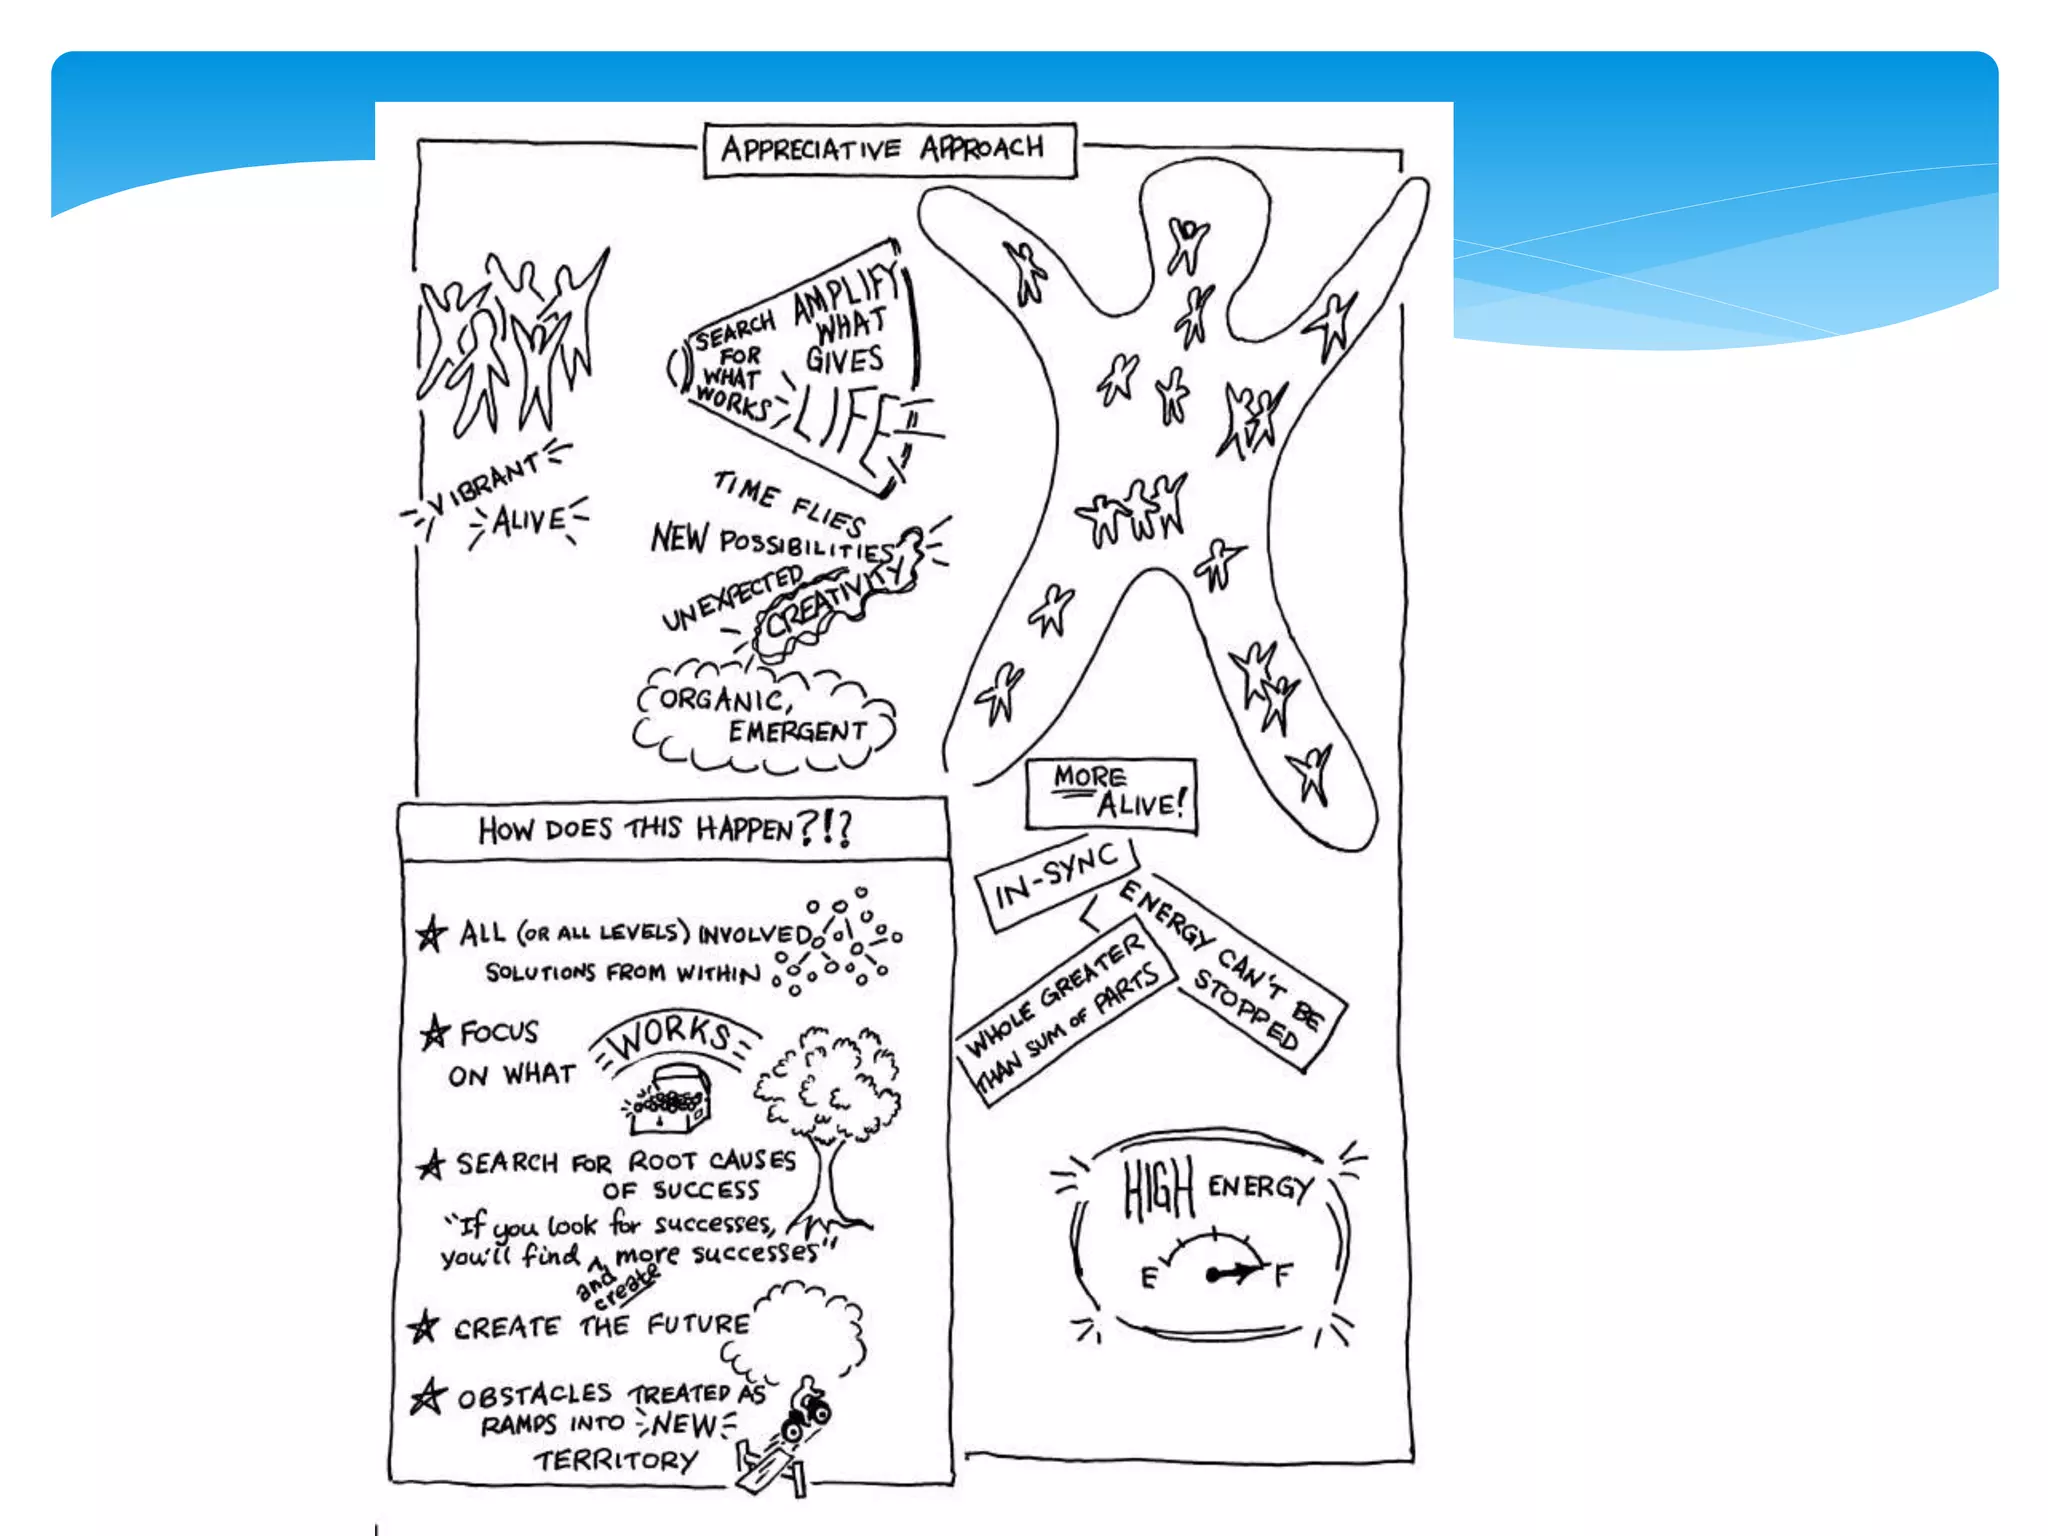 APPRECIATIVE APPROACH
VIBRANT
ALIVE
SEARCH
FOR
WHAT
WORKS
AMPLIFY
WHAT
GIVES
LIFE
TIME FLIES
NEW POSSIBILITIES
UNEXPECTED
CREATIVITY
ORGANIC,
EMERGENT
MORE
ALIVE!
IN-SYNC
ENERGY CAN'T BE
STOPPED
WHOLE GREATER
THAN SUM OF PARTS
HIGH ENERGY
E F
HOW DOES THIS HAPPEN?!?
ALL (OR ALL LEVELS) INVOLVED
SOLUTIONS FROM WITHIN
FOCUS
ON WHAT
WORKS
SEARCH FOR ROOT CAUSES
OF SUCCESS
"If you look for successes,
you'll find ^ more successes"
and
create
CREATE THE FUTURE
OBSTACLES TREATED AS
RAMPS INTO NEW
TERRITORY